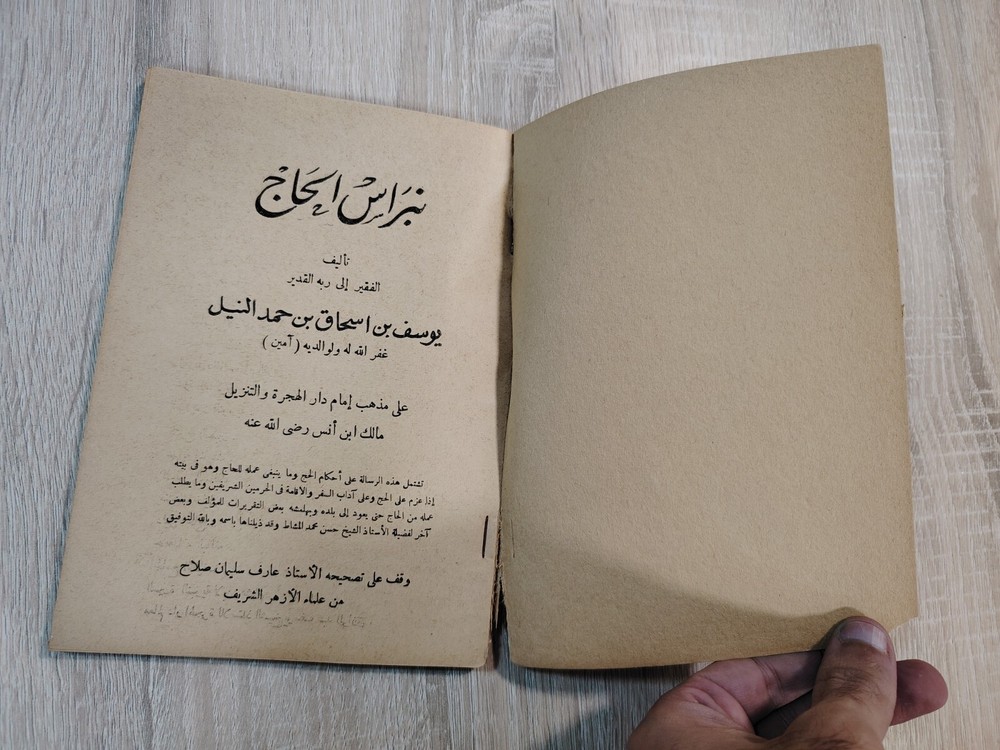 نبراس الحاج
تأليف
الفقير إلى ربه القدير
يوسف بن اسحاق بن حمد النيل
غفر الله له ولوالديه (آمين)
على مذهب إمام دار الهجرة والتنزيل
مالك ابن أنس رضى الله عنه
تشتمل هذه الرسالة على أحكام الحج وما ينبغى عمله للحاج وهو فى بيته
إذا عزم على الحج وعلى آداب السفر والاقامة فى الحرمين الشريفين وما يطلب
عمله من الحاج حتى يعود إلى بلده وبهامشه بعض التقريرات للمؤلف وبعض
آخر لفضيلة الأستاذ الشيخ حسن محمد المشاط وقد ذيلناها باسمه وبالله التوفيق
وقف على تصحيحه الأستاذ عارف سليمان صلاح
من علماء الأزهر الشريف